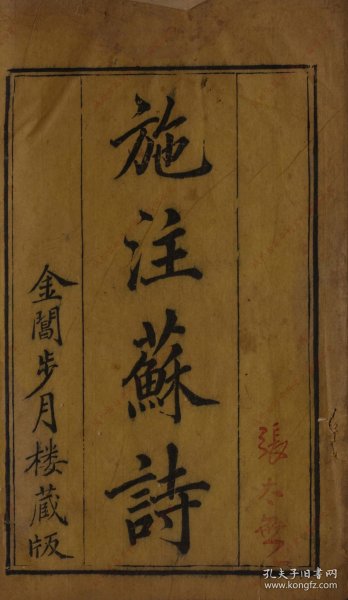 施注蘇詩
金閶步月楼蔵版
張
孔夫子旧書网
www.kongfz.com